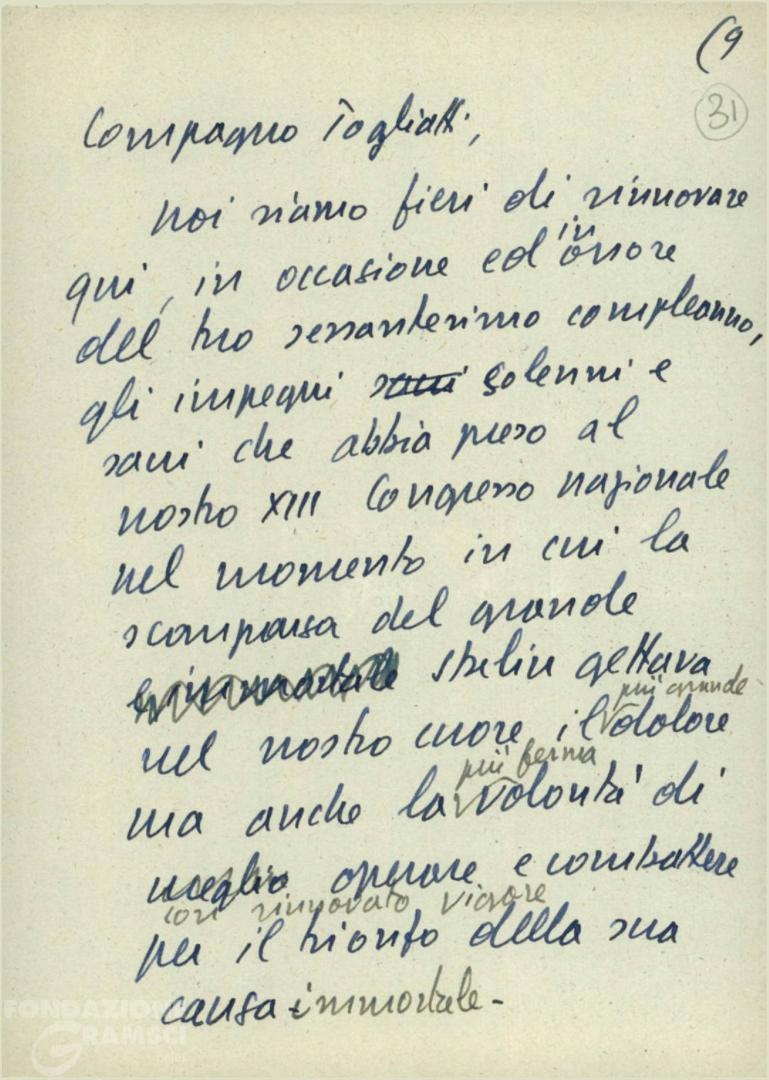 (9
31
Compagno Togliatti,
noi siamo fieri di rinnovare
in
qui, in occasione ed onore
del tuo sessantesimo compleanno,
gli impegni sani solenni e
sani che abbia preso al
nostro XIII Congresso nazionale
nel momento in cui la
scomparsa del grande
e immortale Stalin gettava
più grande
nel nostro cuore il dolore
più ferma
ma anche la volontà di
meglio operare e combattere
con rinnovato vigore
per il trionfo della sua
causa immortale-
FONDAZIONE
GRAMSCI